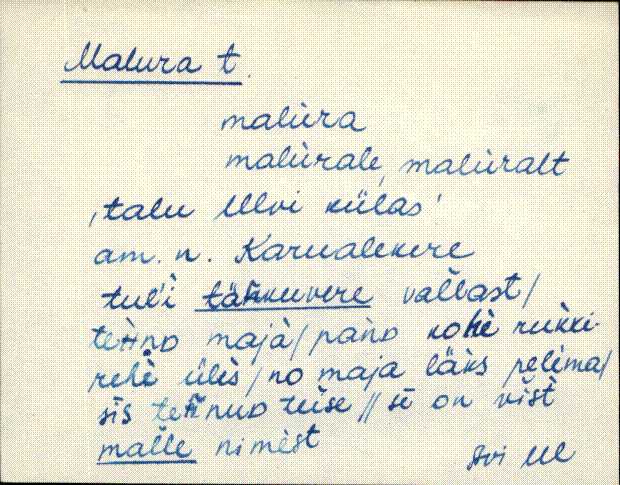 Malura t.
malùra
malùrale, malùralt
'talu Ulvi külas'
am. n. Karualekere
tul'i tähkuvere vallast/
tehno majà/ pàno kohè rukki-
rehè ülès/ no maja läks pelèma/
sis tehnud teise // sè on vist
malle nimèst